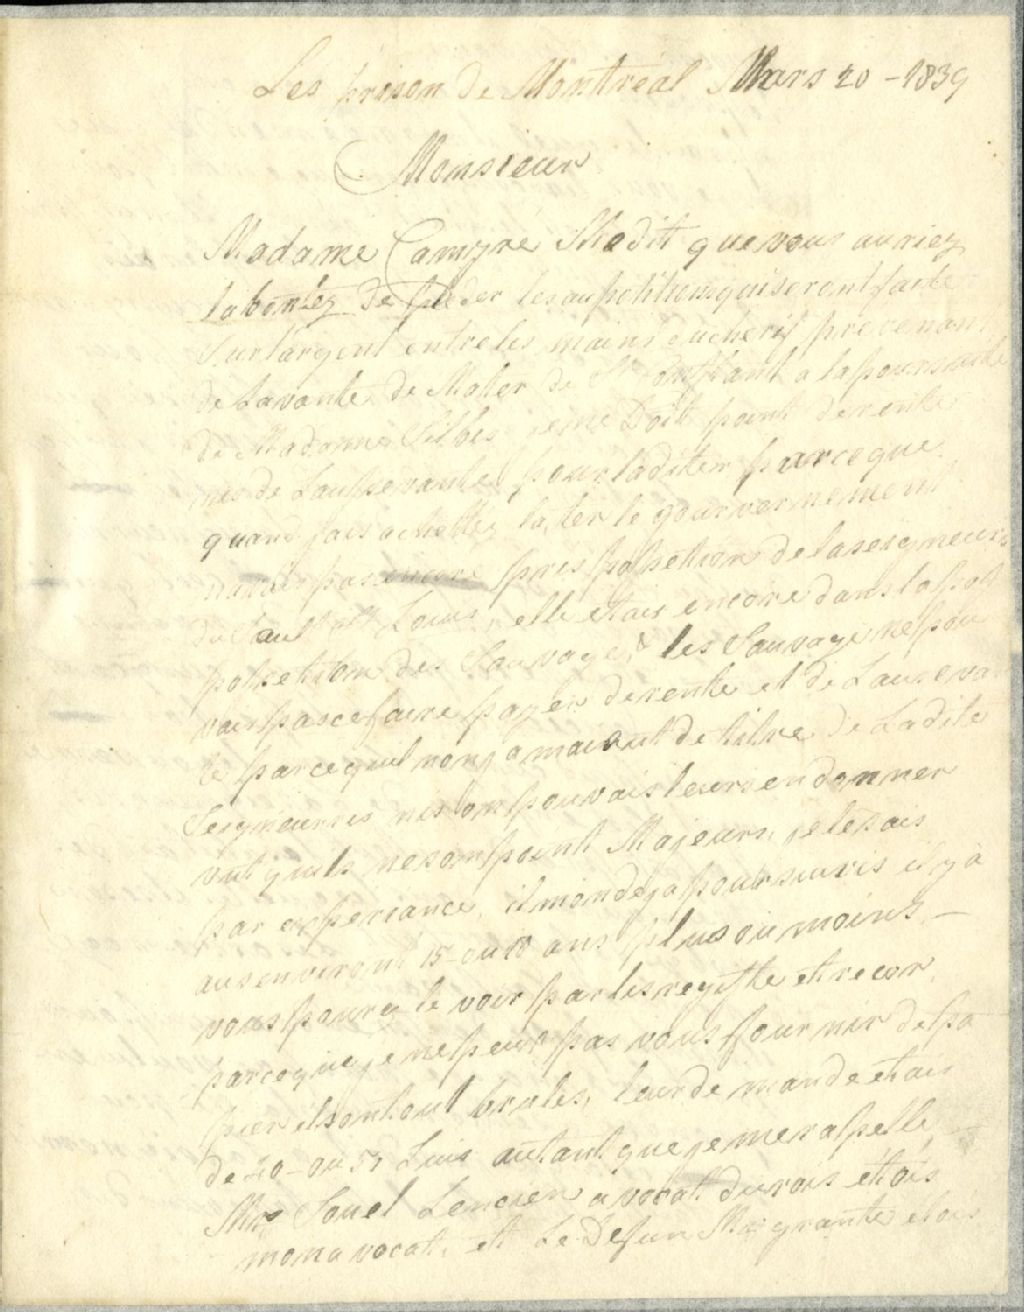 Les prison de Montréal Mars 20 - 1839
Monsieur
Madame Camyré Madit que vous auriez
labontez de les aupotitions quiseront faite
Surlargent entreles mains ducherif provenant
de lavante de Mater de St Constant a lapoursuite
de Madame jeme Doit point derente
nis de Lausevante pourladiter parceque
quand jais achettez later le gouvernement
navais pas encore pris posetion delaseigneurie
du Sault St Louis, elle etais encore dans la
posetion des Sauvage, les Sauvage nespou
vais pas ce faire payer derente et de Lauseva
te parcequil nonjamaieut detitre de Ladite
Seigneuries nisom pouvais leursendonner
vut quils nesompoint Majeurs, jelesais
par experiance, ilmondejapoursuivis ilya
ausenviront 15 - ou 18 ans plus ou moins -
vouspouré le voir parlisregistte et recor
parceque je nespeut pas vous fournir depa
pier ilsontout brules, leurdemande etais
de 40 - ou 51 Luis autant quejemerapelle,
Mr Sonel Lencien avocat durois etois
monavocat, et Le Defun Mr grante etois